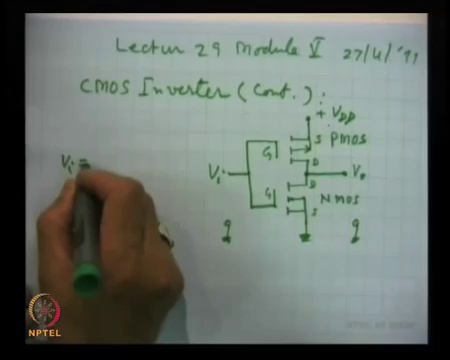 Lectur 29 Module V 27/4/'11
CMOS Inverter (Cont.) :
+ VDD
S PMOS
G
D
Vi =
Vi
Vo
D
G
NMOS
S
NPTEL